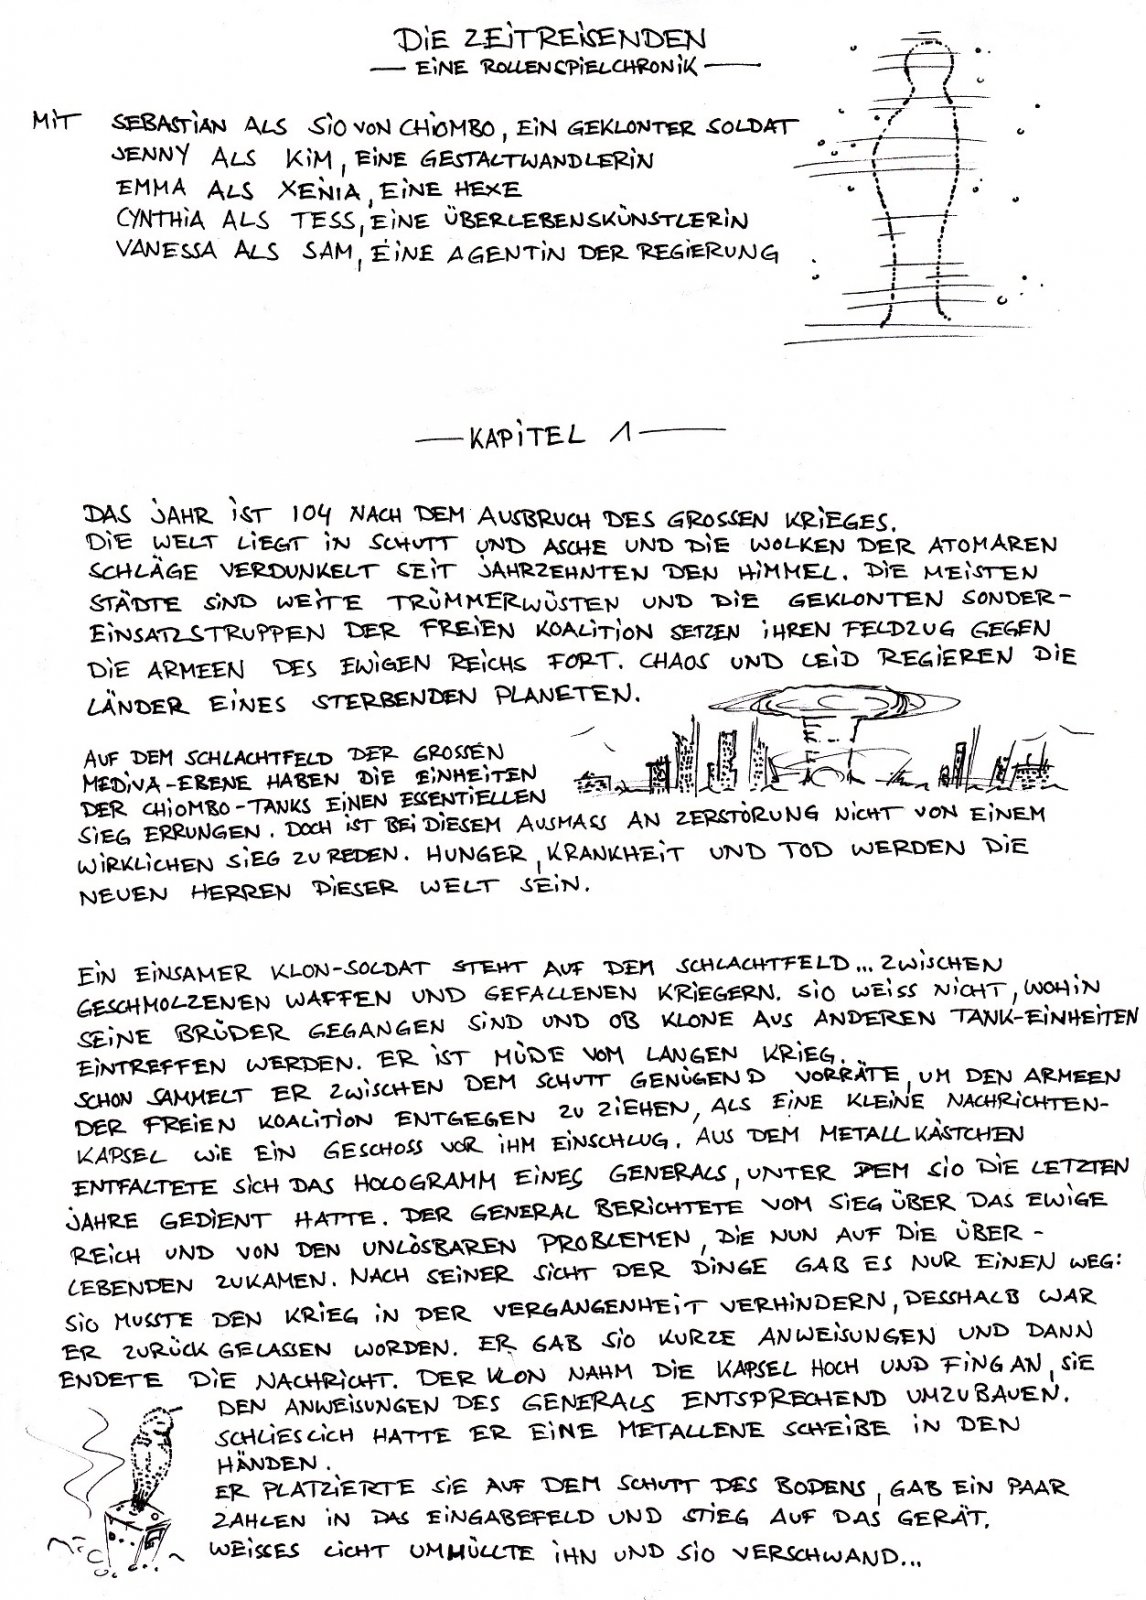 DIE ZEITREISENDEN
— EINE ROLLENSPIELCHRONIK —
MIT SEBASTIAN ALS SIO VON CHIOMBO, EIN GEKLONTER SOLDAT
JENNY ALS KIM, EINE GESTALTWANDLERIN
EMMA ALS XENIA, EINE HEXE
CYNTHIA ALS TESS, EINE ÜBERLEBENSKÜNSTLERIN
VANESSA ALS SAM, EINE AGENTIN DER REGIERUNG
— KAPITEL 1 —
DAS JAHR IST 104 NACH DEM AUSBRUCH DES GROSSEN KRIEGES.
DIE WELT LIEGT IN SCHUTT UND ASCHE UND DIE WOLKEN DER ATOMAREN
SCHLÄGE VERDUNKELT SEIT JAHRZEHNTEN DEN HIMMEL. DIE MEISTEN
STÄDTE SIND WEITE TRÜMMERWÜSTEN UND DIE GEKLONTEN SONDER-
EINSATZSTRUPPEN DER FREIEN KOALITION SETZEN IHREN FELDZUG GEGEN
DIE ARMEEN DES EWIGEN REICHS FORT. CHAOS UND LEID REGIEREN DIE
LÄNDER EINES STERBENDEN PLANETEN.
AUF DEM SCHLACHTFELD DER GROSSEN
MEDIVA-EBENE HABEN DIE EINHEITEN
DER CHIOMBO-TANKS EINEN ESSENTIELLEN
SIEG ERRUNGEN. DOCH IST BEI DIESEM AUSMASS AN ZERSTÖRUNG NICHT VON EINEM
WIRKLICHEN SIEG ZU REDEN. HUNGER, KRANKHEIT UND TOD WERDEN DIE
NEUEN HERREN DIESER WELT SEIN.
EIN EINSAMER KLON-SOLDAT STEHT AUF DEM SCHLACHTFELD... ZWISCHEN
GESCHMOLZENEN WAFFEN UND GEFALLENEN KRIEGERN. SIO WEISS NICHT, WOHIN
SEINE BRÜDER GEGANGEN SIND UND OB KLONE AUS ANDEREN TANK-EINHEITEN
EINTREFFEN WERDEN. ER IST MÜDE VOM LANGEN KRIEG.
SCHON SAMMELT ER ZWISCHEN DEM SCHUTT GENÜGEND VORRÄTE, UM DEN ARMEEN
DER FREIEN KOALITION ENTGEGEN ZU ZIEHEN, ALS EINE KLEINE NACHRICHTEN-
KAPSEL WIE EIN GESCHOSS VOR IHM EINSCHLUG. AUS DEM METALLKÄSTCHEN
ENTFALTETE SICH DAS HOLOGRAMM EINES GENERALS, UNTER DEM SIO DIE LETZTEN
JAHRE GEDIENT HATTE. DER GENERAL BERICHTETE VOM SIEG ÜBER DAS EWIGE
REICH UND VON DEN UNLÖSBAREN PROBLEMEN, DIE NUN AUF DIE ÜBER-
LEBENDEN ZUKAMEN. NACH SEINER SICHT DER DINGE GAB ES NUR EINEN WEG:
SIO MUSSTE DEN KRIEG IN DER VERGANGENHEIT VERHINDERN, DESSHALB WAR
ER ZURÜCK GELASSEN WORDEN. ER GAB SIO KURZE ANWEISUNGEN UND DANN
ENDETE DIE NACHRICHT. DER KLON NAHM DIE KAPSEL HOCH UND FING AN, SIE
DEN ANWEISUNGEN DES GENERALS ENTSPRECHEND UMZUBAUEN.
SCHLIESLICH HATTE ER EINE METALLENE SCHEIBE IN DEN
HÄNDEN.
ER PLATZIERTE SIE AUF DEM SCHUTT DES BODENS, GAB EIN PAAR
ZAHLEN IN DAS EINGABEFELD UND STIEG AUF DAS GERÄT.
WEISSES LICHT UMHÜLLTE IHN UND SIO VERSCHWAND...